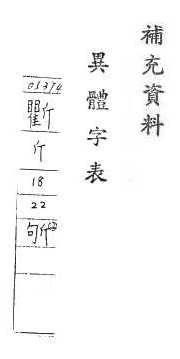 補充資料
異體字表
01374
斤
18
22
斪